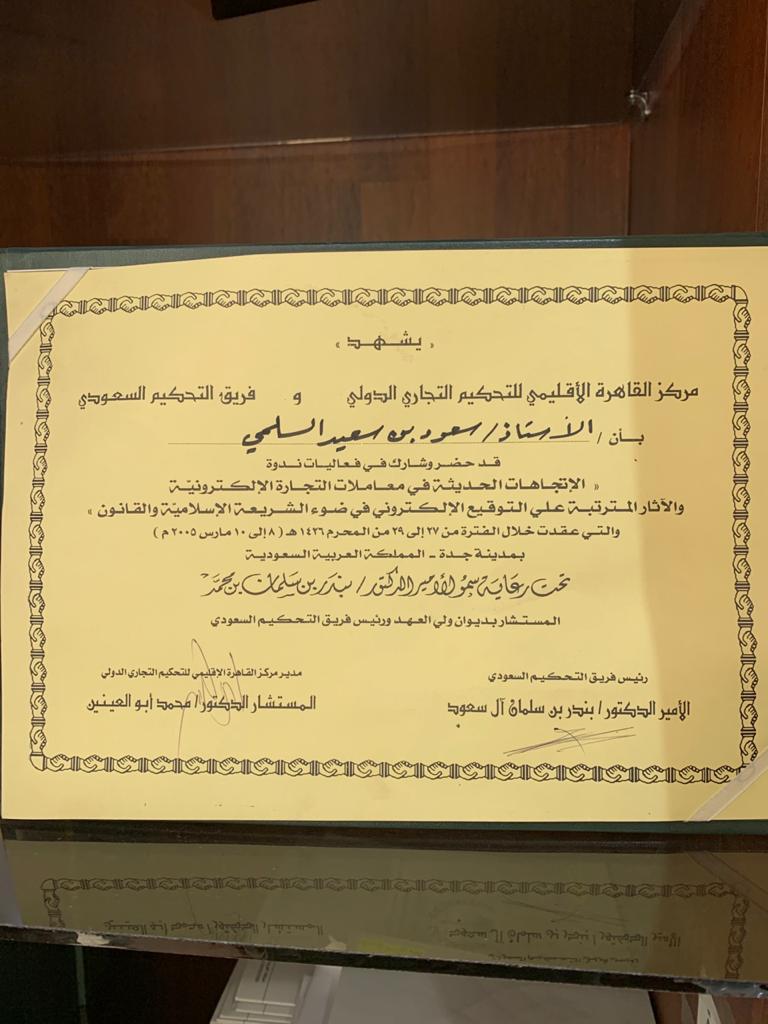 « يشهد »
مركز القاهرة الأقليمي للتحكيم التجاري الدولي و فريق التحكيم السعودي
بأن / الأستاذ / سعود بن سعيد السلمي
قد حضر وشارك في فعاليات ندوة
« الإتجاهات الحديثة في معاملات التجارة الإلكترونية
والآثار المترتبة علي التوقيع الإلكتروني في ضوء الشريعة الإسلامية والقانون »
والتي عقدت خلال الفترة من ٢٧ إلى ٢٩ من المحرم ١٤٢٦ هـ ( ٨ إلى ١٠ مارس ٢٠٠٥ م )
بمدينة جدة - المملكة العربية السعودية
تحت رعاية سمو الأمير الدكتور / بندر بن سلمان بن محمد
المستشار بديوان ولي العهد ورئيس فريق التحكيم السعودي
رئيس فريق التحكيم السعودي
الأمير الدكتور / بندر بن سلمان آل سعود
مدير مركز القاهرة الإقليمي للتحكيم التجاري الدولي
المستشار الدكتور / محمد أبو العينين